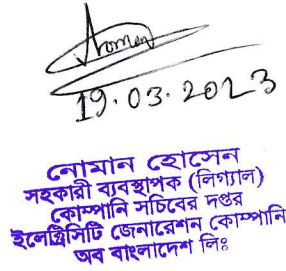 Noman
19.03.2023
নোমান হোসেন
সহকারী ব্যবস্থাপক (লিগ্যাল)
কোম্পানি সচিবের দপ্তর
ইলেক্ট্রিসিটি জেনারেশন কোম্পানি
অব বাংলাদেশ লিঃ